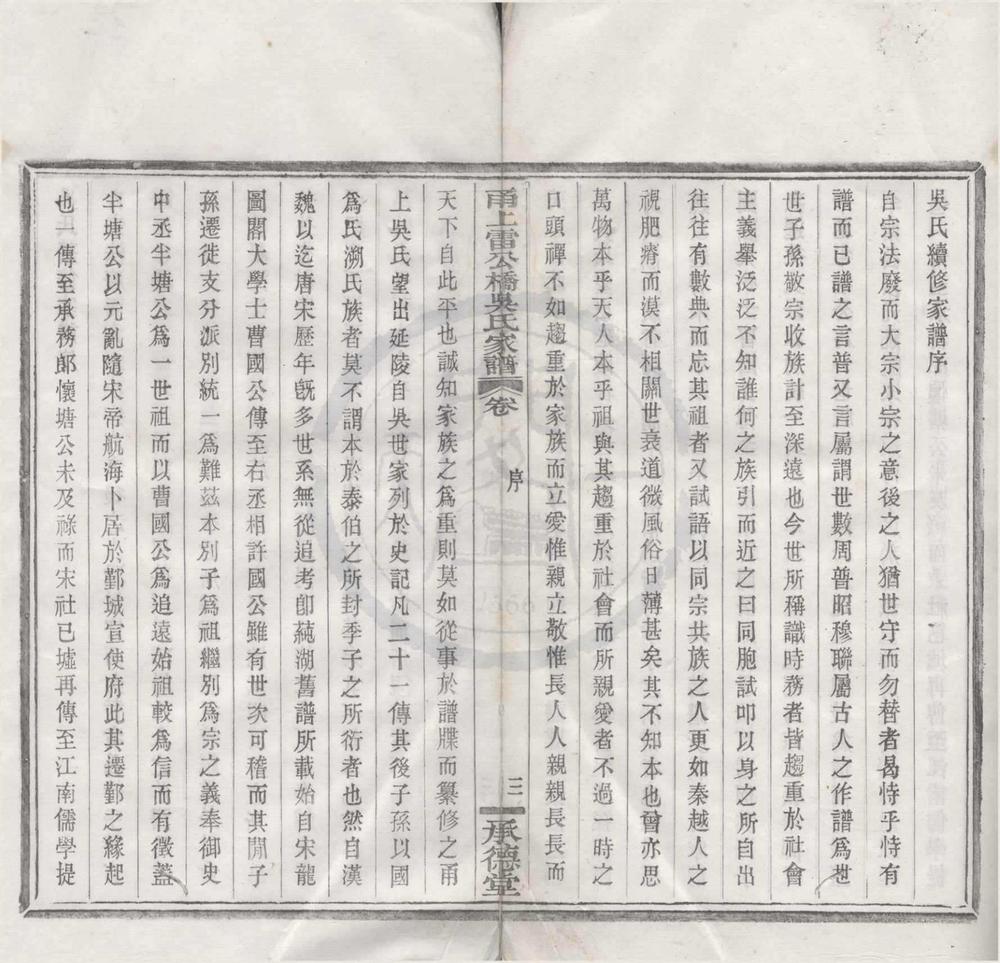 吳氏續修家譜序
自宗法廢而大宗小宗之意後之人猶世守而勿替者曷恃乎恃有
譜而已譜之言普又言屬謂世數周普昭穆聯屬古人之作譜爲世
世子孫敬宗收族計至深遠也今世所稱識時務者皆趨重於社會
主義舉泛泛不知誰何之族引而近之曰同胞試叩以身之所自出
往往有數典而忘其祖者又試語以同宗共族之人更如秦越人之
視肥瘠而漠不相關世衰道微風俗日薄甚矣其不知本也曾亦思
萬物本乎天人本乎祖與其趨重於社會而所親愛者不過一時之
口頭禪不如趨重於家族而立愛惟親立敬惟長人人親親長長而
甬上雷公橋吳氏家譜 卷 序 三 承德堂
天下自此平也誠知家族之爲重則莫如從事於譜牒而纂修之甬
上吳氏望出延陵自吳世家列於史記凡二十一傳其後子孫以國
爲氏溯氏族者莫不謂本於泰伯之所封季子之所衍者也然自漢
魏以迄唐宋歷年旣多世系無從追考卽蒓湖舊譜所載始自宋龍
圖閣大學士曹國公傳至右丞相許國公雖有世次可稽而其閒子
孫遷徙支分派別統一爲難茲本別子爲祖繼別爲宗之義奉御史
中丞半塘公爲一世祖而以曹國公爲追遠始祖較爲信而有徵蓋
半塘公以元亂隨宋帝航海卜居於鄞城宣使府此其遷鄞之緣起
也一傳至承務郎懷塘公未及祿而宋社已墟再傳至江南儒學提